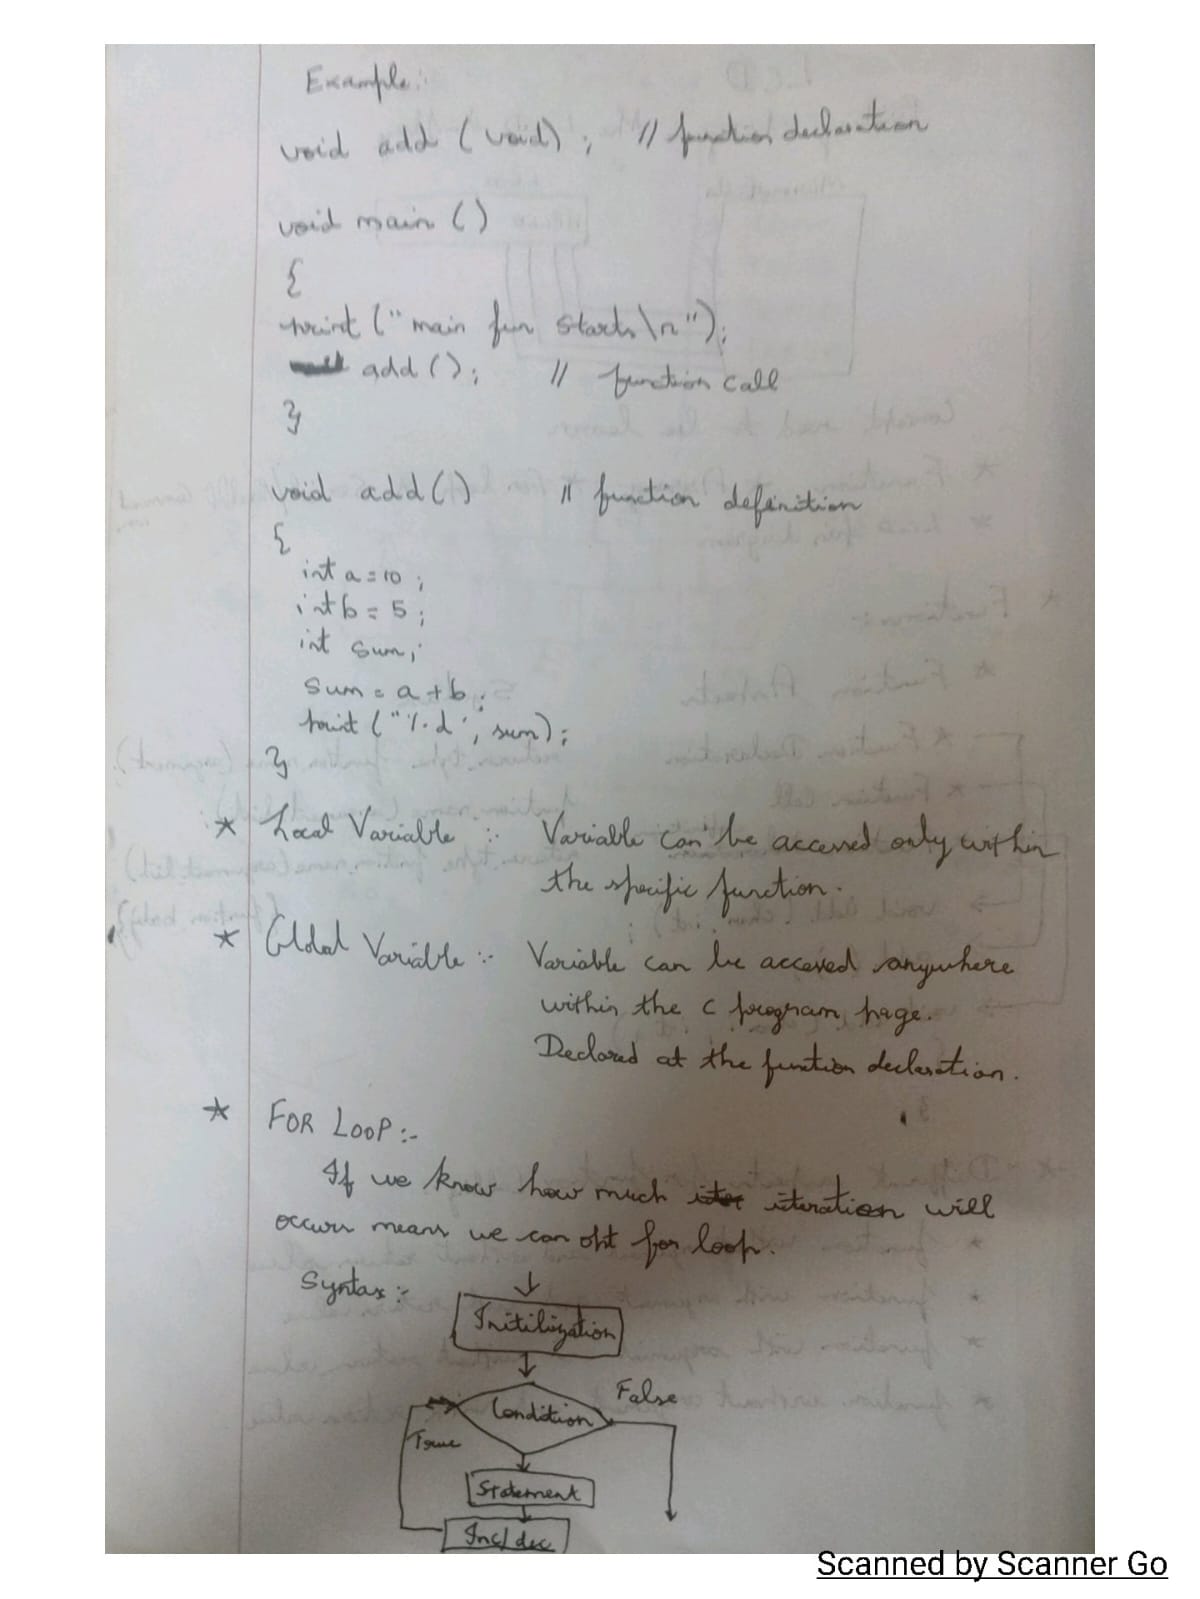 Example:
void add (void) ; // function declaration
void main ()
{
print (" main fun starts \n");
add (); // function call
}
void add () // function definition
{
int a = 10 ;
int b = 5 ;
int sum;
sum = a + b ;
print (" %d ", sum);
}
* Local Variable :- Variable can be accessed only within
the specific function.
* Global Variable :- Variable can be accessed anywhere
within the C program page.
Declared at the function declaration.
* FOR LOOP :-
If we know how much iteration will
occurs means we can opt for loop.
Syntax :-
Initilization
Condition
False
True
Statement
Inc/dec
Scanned by Scanner Go